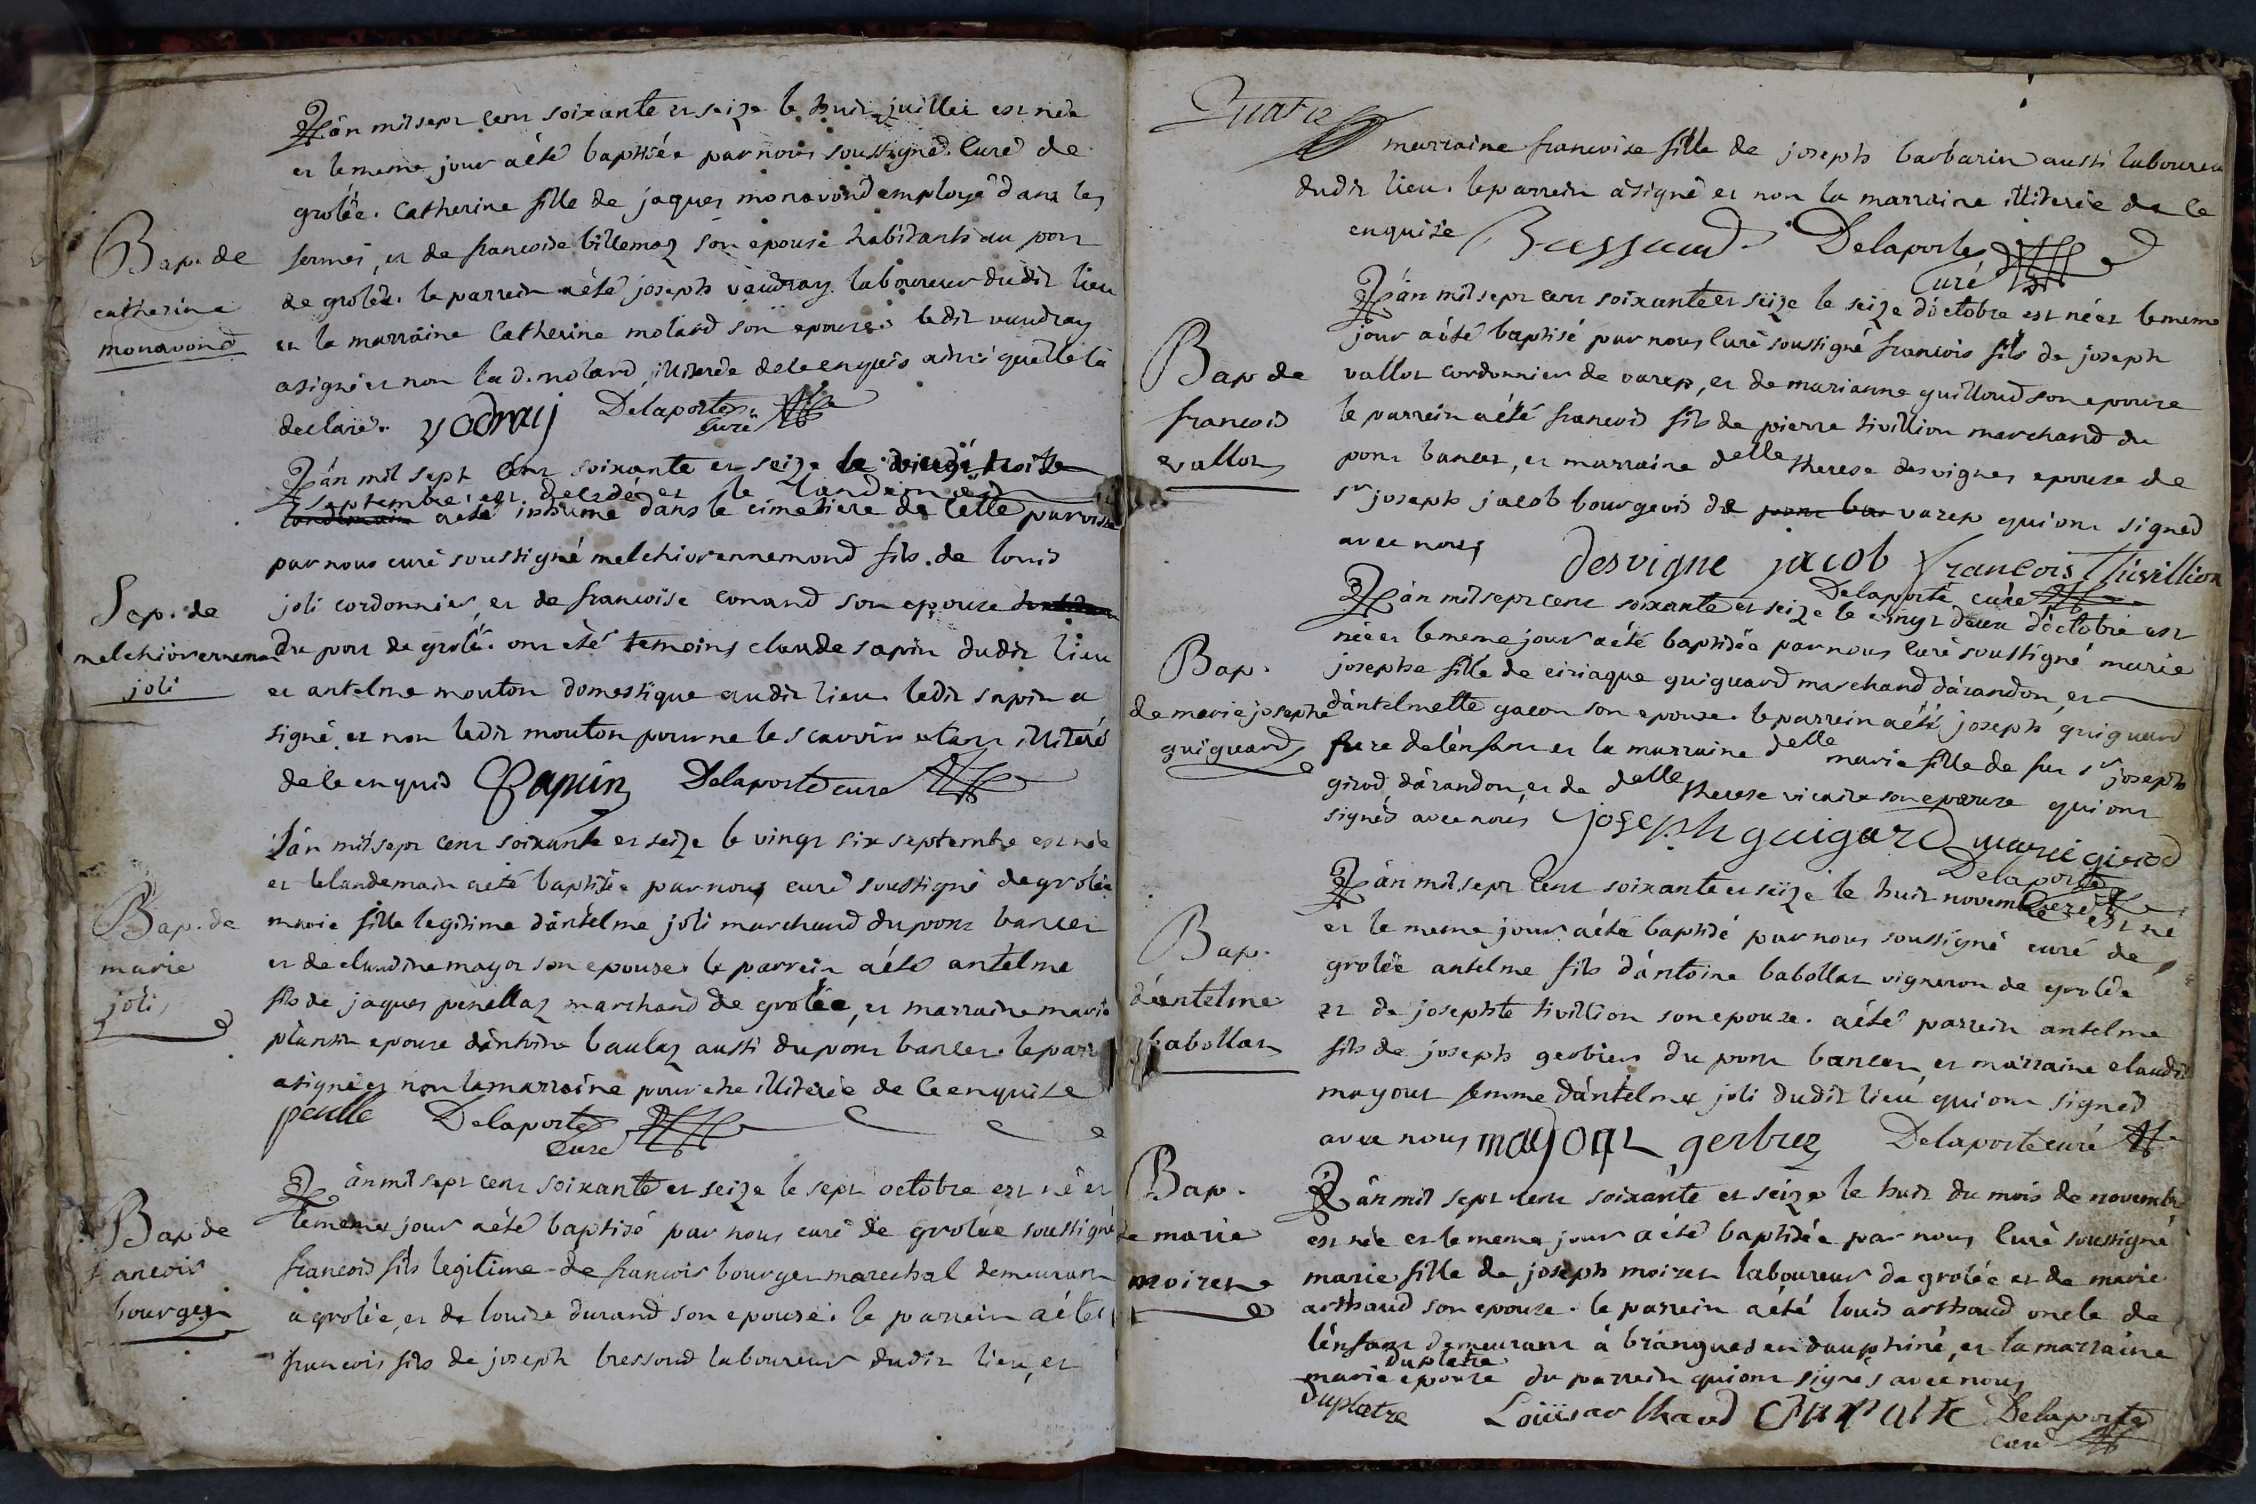 L'an mil sept cent soixante et seize le huit juillet est née
et le meme jour a été baptisée par nous soussigné Curé de
grolée. Catherine fille de jaques monavond employé dans les
fermes, et de francoise billemaz son epouse habitants au pont
de grolée. le parrein a été joseph vaudray laboureur dudit lieu
et la marraine Catherine molard son epouse. ledit vaudray
a signé et non la d. molard illiterée de le enquis ainsi quelle la
declaré. vodray Delaporte
curé
Bap. de
catherine
monavond
L'an mil sept cent soixante et seize
septembre est decedé et le landemain
a été inhumé dans le cimetiere de Celle parroisse
par nous curé soussigné melchior ennemond fils de louis
joli cordonnier, et de francoise conand son epouse
du pont de grolé. ont été temoins claude sapin dudit lieu
et antelme mouton domestique audit lieu. ledit sapin a
signé. et non ledit mouton pour ne le scavoir etant illiteré
de le enquis Sapin Delaporte curé
Sep. de
melchior ennemon
joli
L'an mil sept cent soixante et seize le vingt six septembre est née
et le landemain a été baptisée par nous curé soussigné de grolée
marie fille legitime d'antelme joli marchand du pont bancet
et de claudine mayot son epouse. le parrein a été antelme
fils de jaques penellaz marchand de grolée, et marraine marie
plantin epouse d'antoine baulaz aussi du pont bancet. le parr
a signé et non la marraine pour etre illiterée de le enquise
penelle Delaporte
curé
Bap. de
marie
joli
L'an mil sept cent soixante et seize le sept octobre est né et
le meme jour a été baptisé par nous curé de grolée soussigné
francois fils legitime de francois bourget marechal demeurant
a grolée, et de louise durand son epouse. le parrein a été
francois fils de joseph bressoud laboureur dudit lieu, et
Bap de
francois
bourget
Quatre
marraine francoise fille de joseph barbarin aussi laboureur
dudit lieu. le parrein a signé et non la marraine illiterée de le
enquise Bressoud Delaporte
Curé
L'an mil sept cent soixante et seize le seize d'octobre est né et le meme
jour a été baptisé par nous curé soussigné francois fils de joseph
vallot cordonnier de varep, et de marianne guilloud son epouse
le parrein a été francois fils de pierre tivillion marchand du
pont bancet, et marraine delle therese desvignes epouse de
sr joseph jacob bourgeois de pont ban varep qui ont signed
avec nous desvigne jacob francois Thivillion
Delaporte curé
Bap de
francois
vallot
L'an mil sept cent soixante et seize le vingt deux d'octobre est
née et le meme jour a été baptisée par nous curé soussigné marie
josephe fille de ciriaque guiguard marchand d'arandon, et
d'antelmette gacon son epouse. le parrein a été joseph guiguard
frere de l'enfant et la marraine delle marie fille de feu sr joseph
girod d'arandon, et de delle therese vicaire son epouse qui ont
signés avec nous joseph guigard marie girod
Delaporte
Curé
Bap.
de marie josephe
guiguard
L'an mil sept cent soixante et seize le huit novembre est né
et le meme jour a été baptisé par nous soussigné curé de
grolée antelme fils d'antoine babollat vigneron de grolée
et de josephte tivillion son epouse. a été parrein antelme
fils de joseph gerbier du pont bancet, et marraine claudi
mayout femme d'antelme joli dudit lieu qui ont signed
avec nous mayout gerbiez Delaporte curé
Bap.
d'antelme
babollat
L'an mil sept cent soixante et seize le huit du mois de novembre
est née et le meme jour a été baptisée par nous curé soussigné
marie fille de joseph moiret laboureur de grolée et de marie
arthaud son epouse. le parrein a été louis arthaud oncle de
l'enfant demeurant à brangues en dauphiné, et la marraine
duplatre
marie epouse du parrein qui ont signés avec nous
Duplatre Louis arthaud Delaporte
curé
Bap.
de marie
moiret